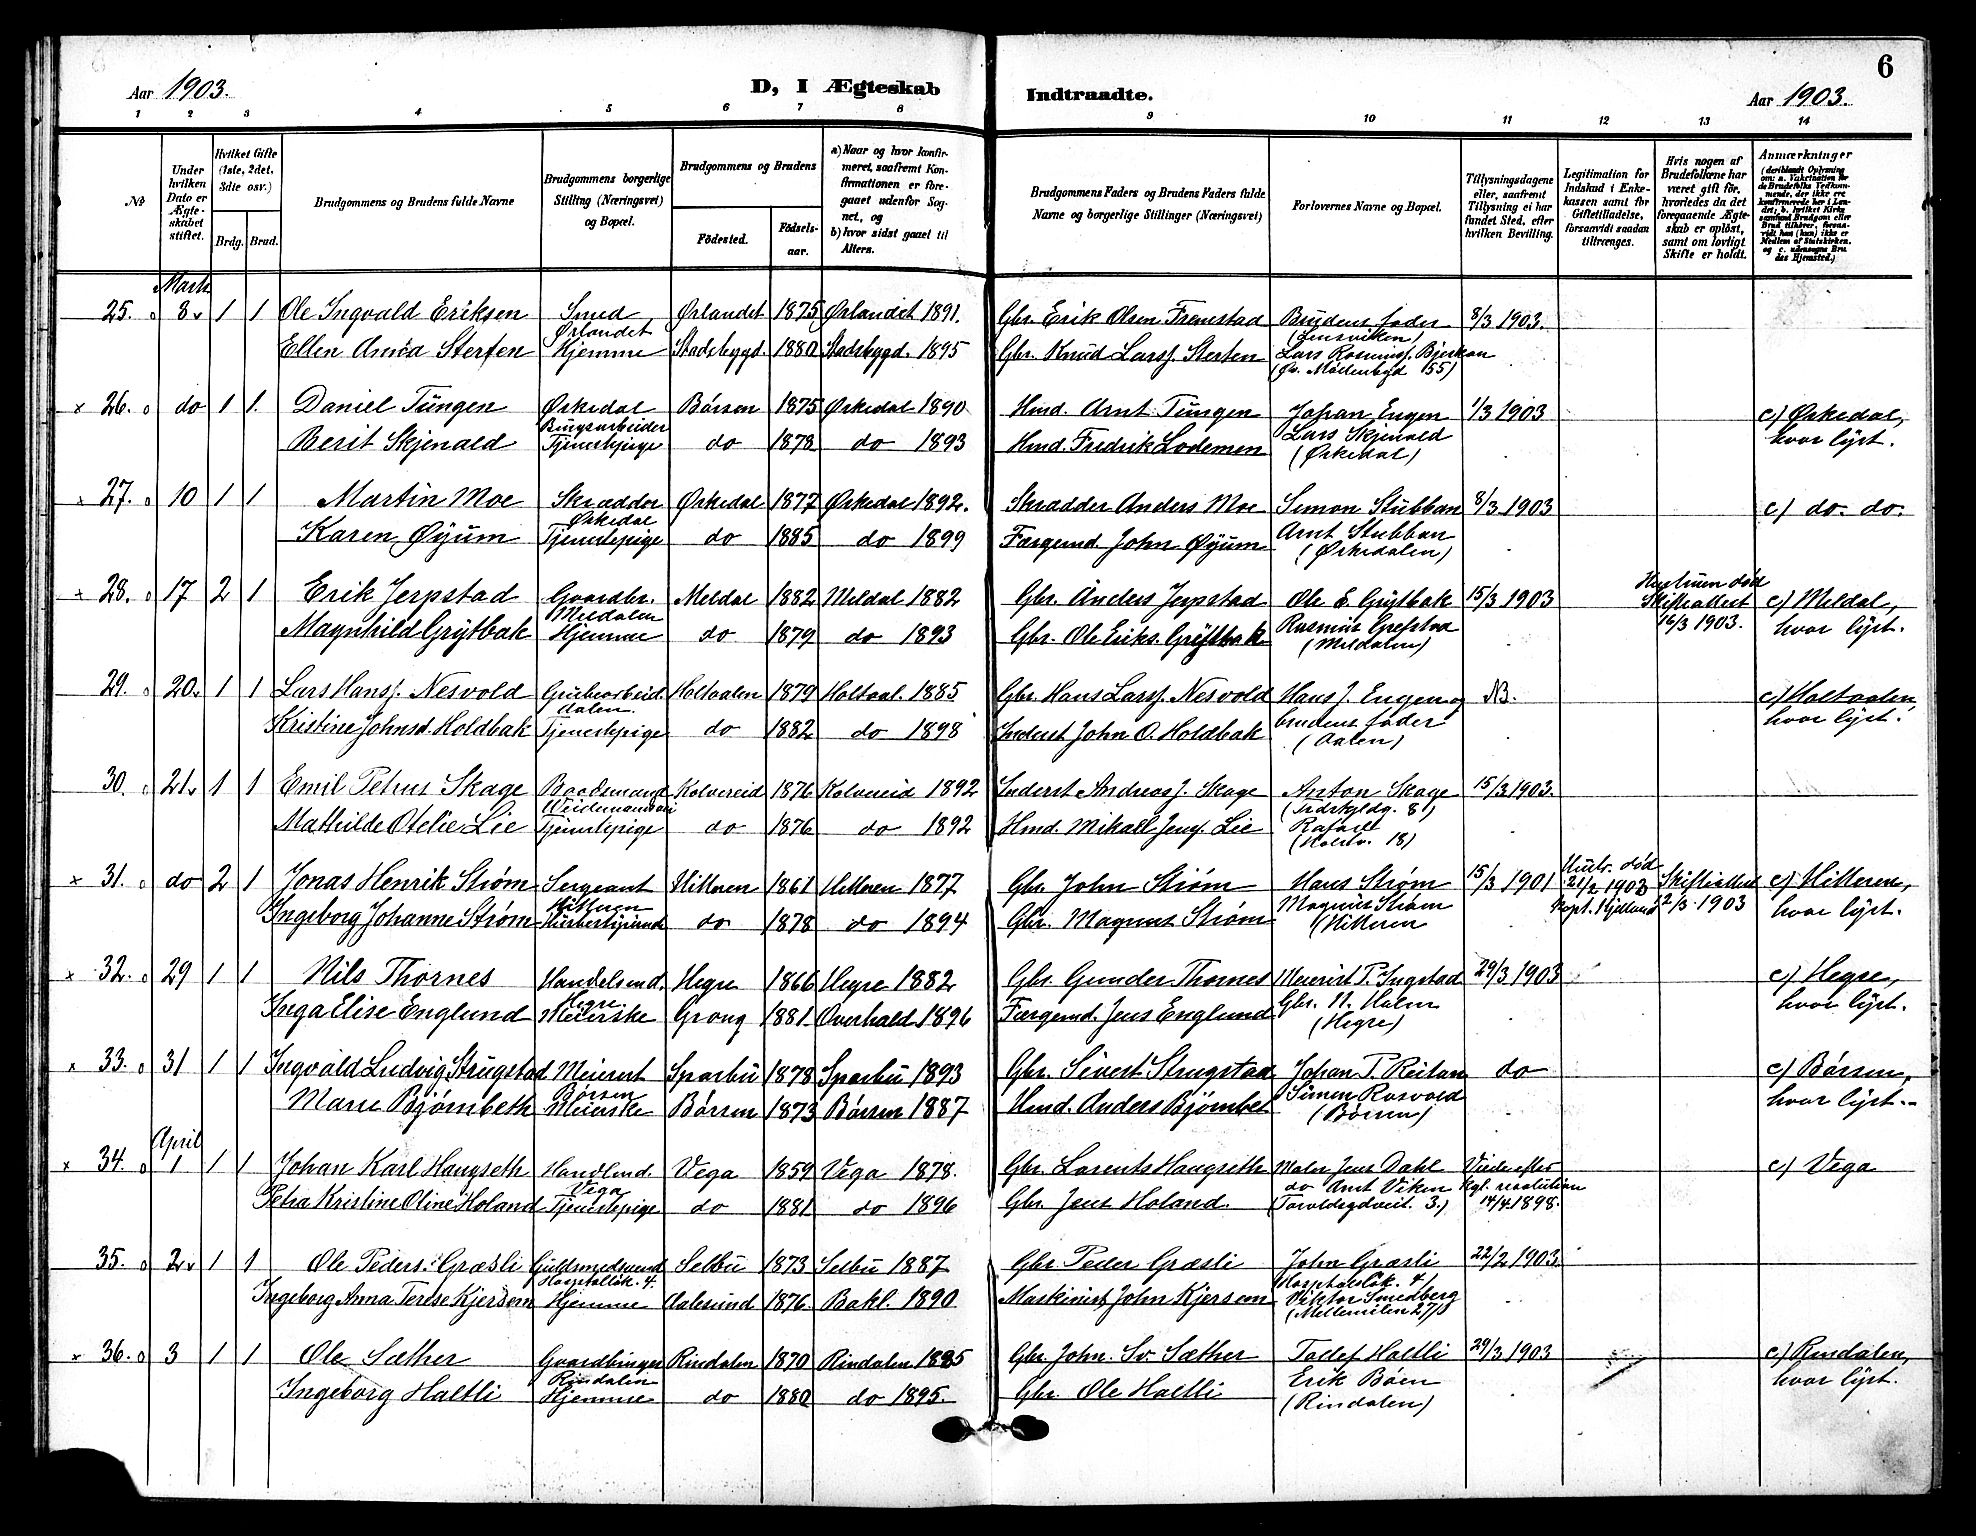 6
Aar 1903.
D, I Ægteskab Indtraadte.
Aar 1903.
1 2 3 4 5 6 7 8 9 10 11 12 13 14
No
Under hvilken Dato er Ægteskabet stiftet.
Hvilket Gifte (1ste, 2det, 3die osv.)
Brdg. Brud.
Brudgommens og Brudens fulde Navne
Brudgommens borgerlige Stilling (Næringsvei) og Bopæl.
Brudgommens og Brudens
Födested. Födselsaar.
a) Naar og hvor konfirmeret, saafremt Konfirmationen er foregaaet udenfor Sognet, og
b) hvor sidst gaaet til Alters.
Brudgommens Faders og Brudens Faders fulde Navne og borgerlige Stillinger (Næringsvei)
Forlovernes Navne og Bopæl.
Tillysningsdagene eller, saafremt Tillysning ei har fundet Sted, efter hvilken Bevilling.
Legitimation for Indskud i Enkekassen samt for Giftetilladelse, forsaavidt saadan tiltrænges.
Hvis nogen af Brudefolkene har været gift för, hvorledes da det foregaaende Ægteskab er oplöst, samt om lovligt Skifte er holdt.
Anmærkninger
Marts
25. 8 1 1 Ole Ingvald Eriksen Smed Ørlandet 1875 Ørlandet 1891. Gbr. Erik Olsen Fremstad Brudens fader 8/3 1903.
Ørlandet
Ellen Anna Sterten Hjemme Stadsbygd. 1880 Stadsbygd. 1895 Gbr. Knud Larss. Sterten Lars Rasmuss. Bjerkan
(Øv. Møllenbgd 155)
x 26. do 1 1 Daniel Tungen Ørkedal Børsen 1875 Ørkedal 1890 Hmd. Arnt Tungen Johan Engen 1/3 1903 c) Ørkedal,
Berit Skjenald Tjenestepige do 1878 do 1893 Hmd. Fredrik Lodemen Lars Skjenald hvor lyst.
(Ørkedal)
x 27. 10 1 1 Martin Moe Skrædder Ørkedal 1877 Ørkedal 1892. Skrædder Anders Moe Simon Stubban 8/3 1903 c) do. do.
Ørkedal
Karen Øyum Tjenestepige do 1885 do 1899 Færgemd. John Øyum Arnt Stubban
(Ørkedalen)
x 28. 17 2 1 Erik Jerpstad Gaardbr. Meldal 1882 Meldal 1882 Gbr. Anders Jerpstad Ole E. Grytbak 15/3 1903 Hustruen død Skifteattest 16/3 1903. c) Meldal,
Meldalen
Magnhild Grytbak Hjemme do 1879 do 1893 Gbr. Ole Eriks. Grytbak Rasmus Grefstad hvor lyst.
(Meldalen)
29. 20 1 1 Lars Hanss. Nesvold Grubearbeid. Holtaalen 1879 Holtaal. 1885 Gbr. Hans Larss. Nesvold Hans J. Engen og NB. c) Holtaalen,
Aalen.
Kristine Johnsd. Holdbak Tjenestepige do 1882 do 1898 Inderst John O. Holdbak brudens fader hvor lyst.
(Aalen)
30. 21 1 1 Emil Petrus Skage Baadsmand Kolvereid 1876 Kolvereid 1892 Inderst Andreas J. Skage Anton Skage 15/3 1903.
Mathilde Otelie Lie Tjenestepige do 1876 do 1892 Hmd. Mikael Jens. Lie
x 31. do 2 1 Jonas Henrik Strøm Sergeant Hitteren 1861 Hitteren 1877 Gbr. John Strøm Hans Strøm 15/3 1901 Hustr. død 21/2 1903 Skifteattest 2/3 1903 c) Hitteren,
Hitteren
Ingeborg Johanne Strøm do 1878 do 1894 Gbr. Magnus Strøm Magnus Strøm hvor lyst.
(Hitteren
x 32. 29 1 1 Nils Thornes Handelsmd. Hegre 1866 Hegre 1882 Gbr. Gunder Thornes Meierist P. Ingstad 29/3 1903 c) Hegre,
Hegre
Inga Elise Englund Meierske Grong 1881 Overhald 1896 Færgemd. Jens Englund Gbr. N. Halm hvor lyst.
(Hegre)
x 33. 31 1 1 Ingvald Ludvig Strugstad Meierist Sparbu 1878 Sparbu 1893 Gbr. Sivert Strugstad Johan P. Reitan do c) Børsen,
Børsen
Marie Bjørnbeth Meierske Børsen 1873 Børsen 1887 Hmd. Anders Bjørnbet Simon Rosvold hvor lyst.
(Børsen)
April
x 34. 1 1 1 Johan Karl Haugseth Handlmd. Vega 1859 Vega 1878. Gbr. Lorents Haugseth Maler Jens Dahl Viede efter kgl. resolution 14/4 1898. c) Vega
Vega
Petra Kristine Oline Holand Tjenestepige do 1881 do 1896 Gbr. Jens Holand. do Arnt Viken
35. 2 1 1 Ole Peders. Græsli Guldsmedsvend Selbu 1873 Selbu 1887 Gbr. Peder Græsli John Græsli 22/2 1903
Hospitalsløk. 4. Hospitalsløk. 4
Ingeborg Anna Terese Kjersem Hjemme Aalesund 1876. Bakl. 1890 Maskinist John Kjersem Viktor Smedberg
(Mellemilen 27)
x 36. 3 1 1 Ole Sæther Gaardbruger Rindalen 1870 Rindalen 1885 Gbr. John Sv. Sæther Tollef Haltli 29/3 1903 c) Rindalen,
Rindalen
Ingeborg Haltli Hjemme do 1880 do 1895. Gbr. Ole Haltli Erik Bøen hvor lyst.
(Rindalen)